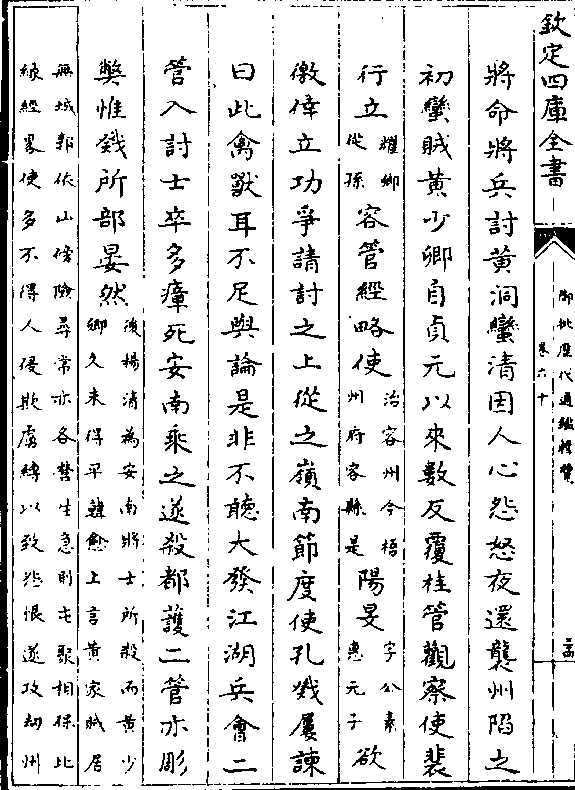 欽定四庫全書
御批歷代通鑑輯覽
卷六十
將命將兵討黃洞蠻清因人心怨怒夜還襲州陷之
初蠻賊黃少卿自貞元以來數反覆桂管觀察使裴
行立耀卿從孫容管經略使治容州今梧州府容縣是陽旻字公素惠元子欲
徼倖立功爭請討之上從之嶺南節度使孔戣屢諫
曰此禽獸耳不足與論是非不聽大發江湖兵會二
管入討士卒多瘴死安南乘之遂殺都護二管亦彫
弊惟戣所部晏然後楊清為安南將士所殺而黃少卿久未得平韓愈上言黃家賊居
無城郭依山傍險尋常亦各營生急則屯聚相保比
緣經畧使多不得人侵欺虜縛以致怨恨遂攻劫州